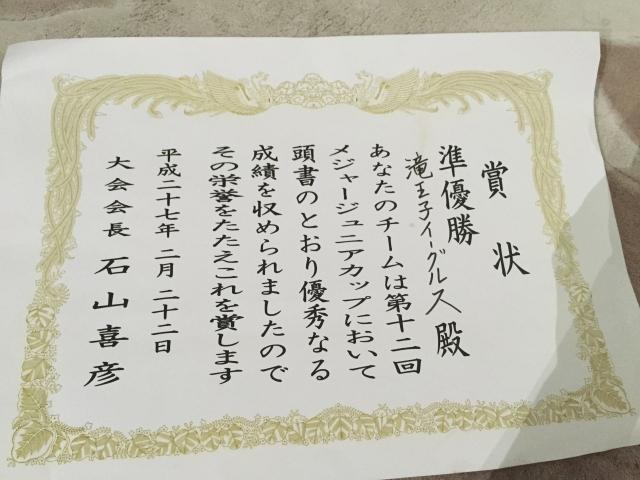 賞状
準優勝
滝王子イーグルス 殿
あなたのチームは第十二回
メジャージュニアカップにおいて
頭書のとおり優秀なる
成績を収められましたので
その栄誉をたたえこれを賞します
平成二十七年 二月 二十二日
大会会長 石山喜彦